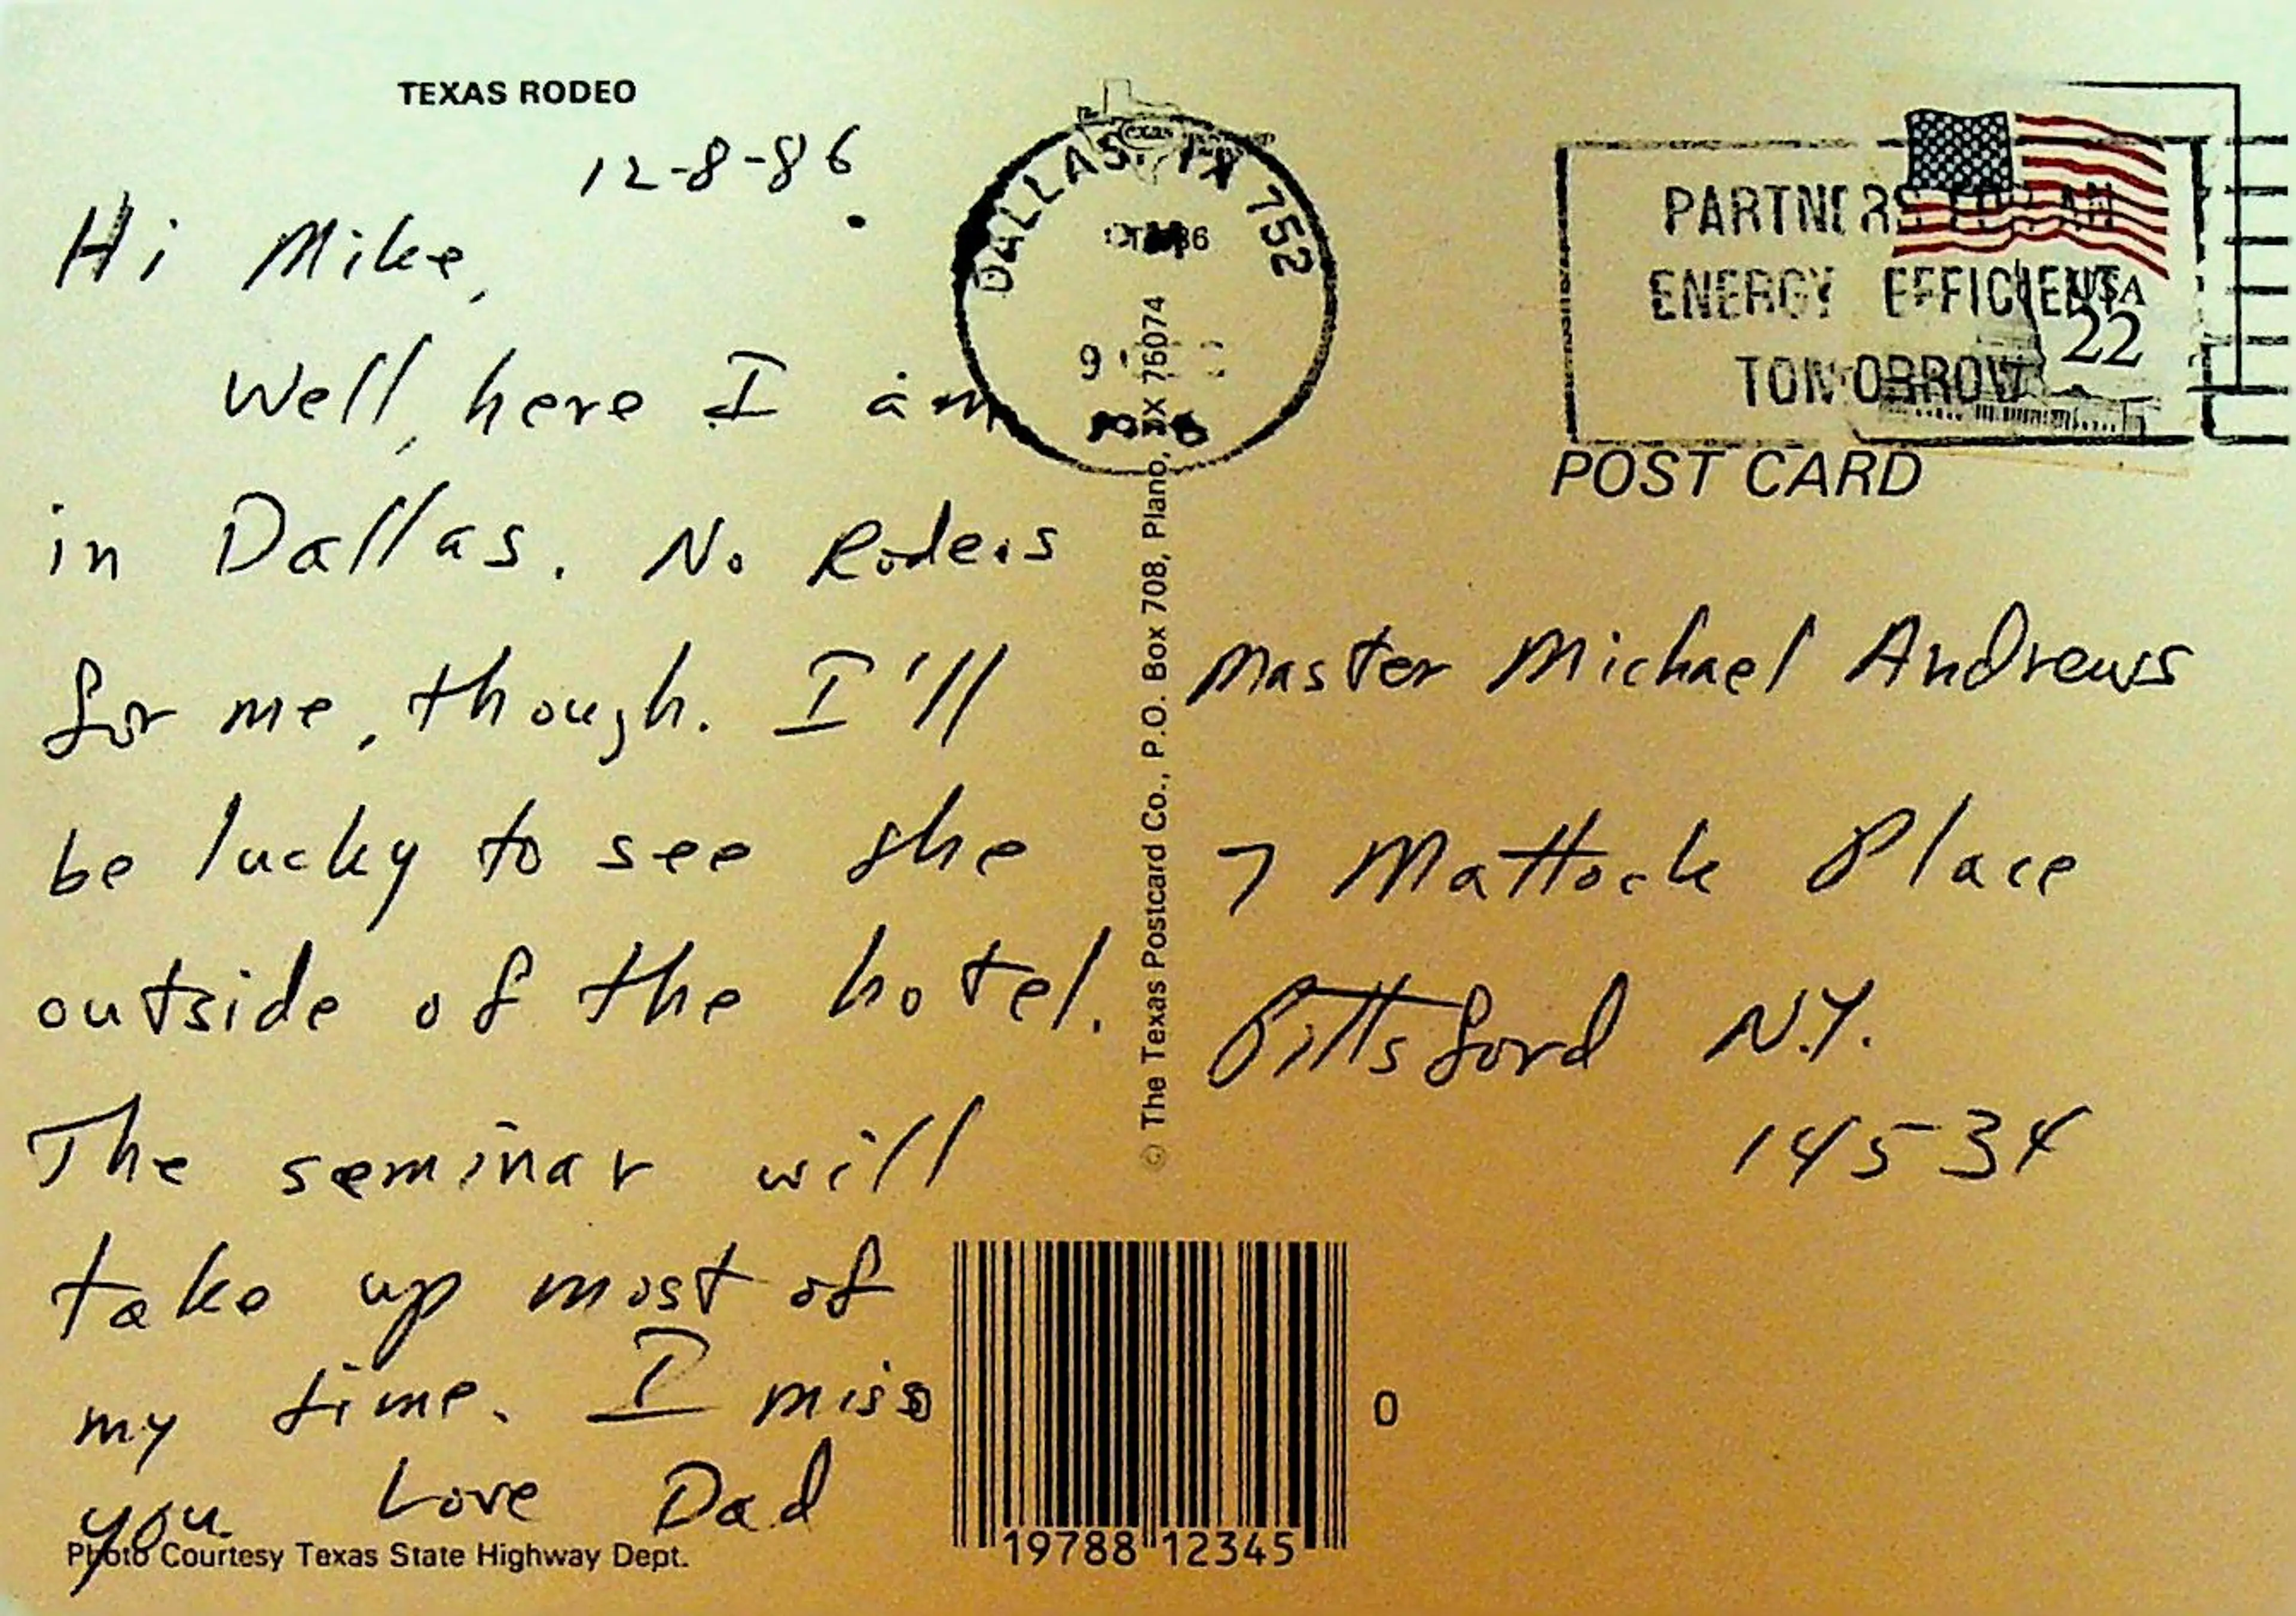 TEXAS RODEO
12-8-86
Hi Mike,
Well, here I am
in Dallas. No Rodeos
for me, though. I'll
be lucky to see the
outside of the hotel.
The seminar will
take up most of
my time. I miss
you Love Dad
Photo Courtesy Texas State Highway Dept.
DALLAS, TX 752
© The Texas Postcard Co., P.O. Box 708, Plano, TX 76074
PARTNERS FOR AN
ENERGY EFFICIENT
TOMORROW
USA
22
POST CARD
Master Michael Andrews
7 Mattock Place
Pittsford N.Y.
14534
19788 12345
0